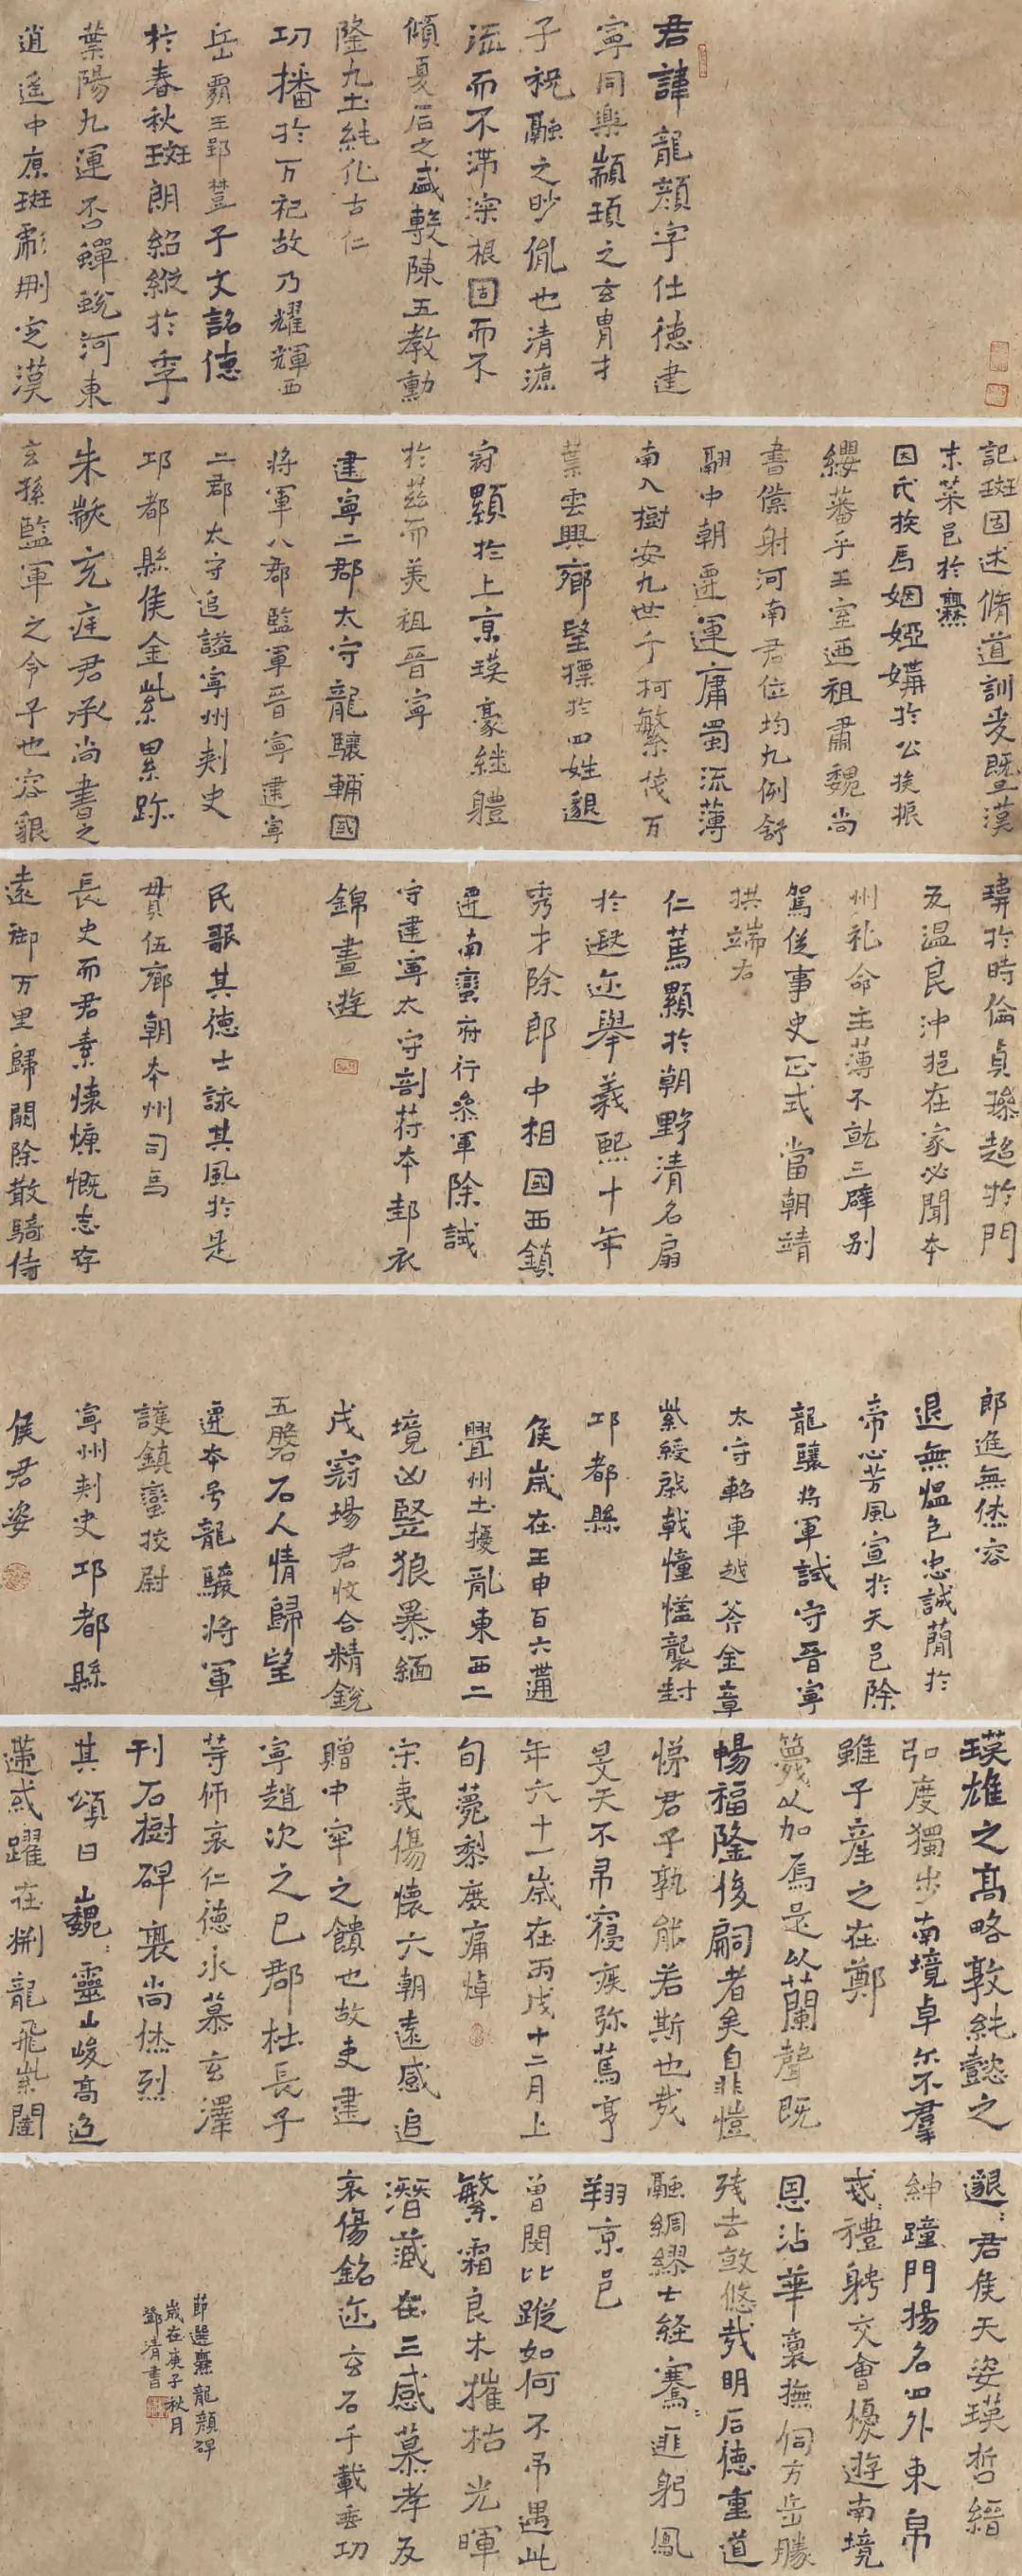 君諱龍顔字仕德建
寧同樂顓頊之玄胄才
子祝融之眇胤也清源
流而不滯深根固而不
傾夏后之盛敷陳五教勳
隆九土純化古仁
功播於万祀故乃耀輝西
岳霸王郢楚子文銘德
於春秋斑朗紹縱於季
葉陽九運否蟬蛻河東
逍遥中原斑彪刪定漢
記斑固述脩道訓爰暨漢
末菜邑於爨
因氏挨焉姻婭媾於公挨振
纓蕃乎王室迺祖肅魏尚
書僕射河南君位均九例舒
翮中朝遷運庸蜀流薄
南入樹安九世千柯繁茂万
葉雲興鄉望摽於四姓邈
冠顯於上京瑛豪継體
於茲而美祖晉寧
建寧二郡太守龍驤輔國
將軍八郡監軍晉寧建寧
二郡太守追謚寧州刺史
邛都縣侯金紫累跡
朱黻充庭君承尚書之
玄孫監軍之令子也容貌
瑋於時倫貞操超於門
友温良沖挹在家必聞本
州礼命主薄不就三辟别
駕從事史正式當朝靖
拱端右
仁蔫顯於朝野清名扇
於遐迩舉義熙十年
秀才除郎中相國西鎮
遷南蠻府行叅軍除試
守建寧太守剖苻本邽衣
錦晝遊
民歌其德士詠其風於是
貫伍鄉朝本州司馬
長史而君素懷慷慨志存
遠御万里歸闕除散騎侍
郎進無烋容
退無愠色忠誠蕳於
帝心芳風宣於天邑除
龍驤將軍試守晉寧
太守軺車越斧金章
紫綬棨戟幢㡤襲封
邛都縣
侯歲在壬申百六遘
舋州土擾亂東西二
境凶豎狼暴緬
戎寇場君收合精銳
五磐石人情歸望
遷本号龍驤將軍
護鎮蠻挍尉
寧州刺史邛都縣
侯君姿
瑛雄之高略敦純懿之
弘度獨步南境卓尓不羣
雖子産之在鄭
篾以加焉是以蘭聲既
暢福隆後嗣者矣自非愷
悌君子孰能若斯也㢤
昊天不吊寢疾弥蔫享
年六十一歲在丙戌十二月上
旬薨黎庶痛悼
宋夷傷懷六朝遠感追
贈中牢之饋也故吏建
寧趙次之巴郡杜長子
等仰哀仁德永慕玄澤
刊石樹碑褒尚烋烈
其頌曰巍：靈山峻高迢
遰或躍在渊龍飛紫闥
邈：君侯天姿瑛哲縉
紳踵門揚名四外束帛
戔：禮聘交會優遊南境
恩沾華裔撫伺方岳勝
殘去㪣悠㢤明后德重道
融綢繆七経騫：匪躬鳳
翔京邑
曾閔比蹤如何不吊遇此
繁霜良木摧枯光暉
潛藏在三感慕孝友
哀傷銘迩玄石千載垂功
節選爨龍顔碑
歲在庚子秋月
鄧清書